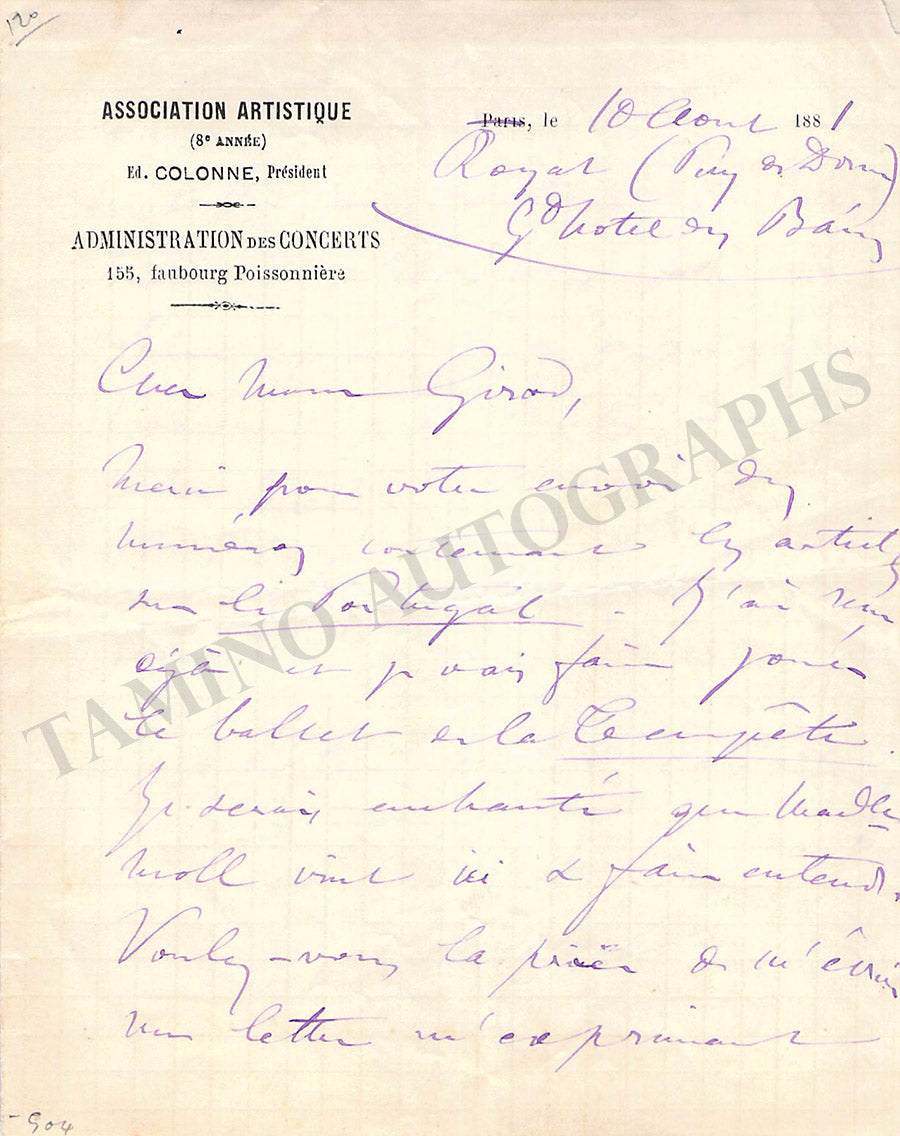 120
ASSOCIATION ARTISTIQUE
(8e ANNÉE)
Ed. COLONNE, Président
ADMINISTRATION DES CONCERTS
155, faubourg Poissonnière
Paris, le 10 Aout 1881
Royat (Puy de Dome)
Gd hotel des Bains
Cher Monsieur Girod,
Merci pour votre envoi des
numéros contenant les articles
sur le Portugal - J'ai reçu
déjà et je vais faire jouer
le ballet de la Tempête.
Je serais enchanté que Madlle
Moll vint ici se faire entendre.
Voulez-vous la prier de m'écrire
une lettre m'exprimant
- 904
TAMINO AUTOGRAPHS